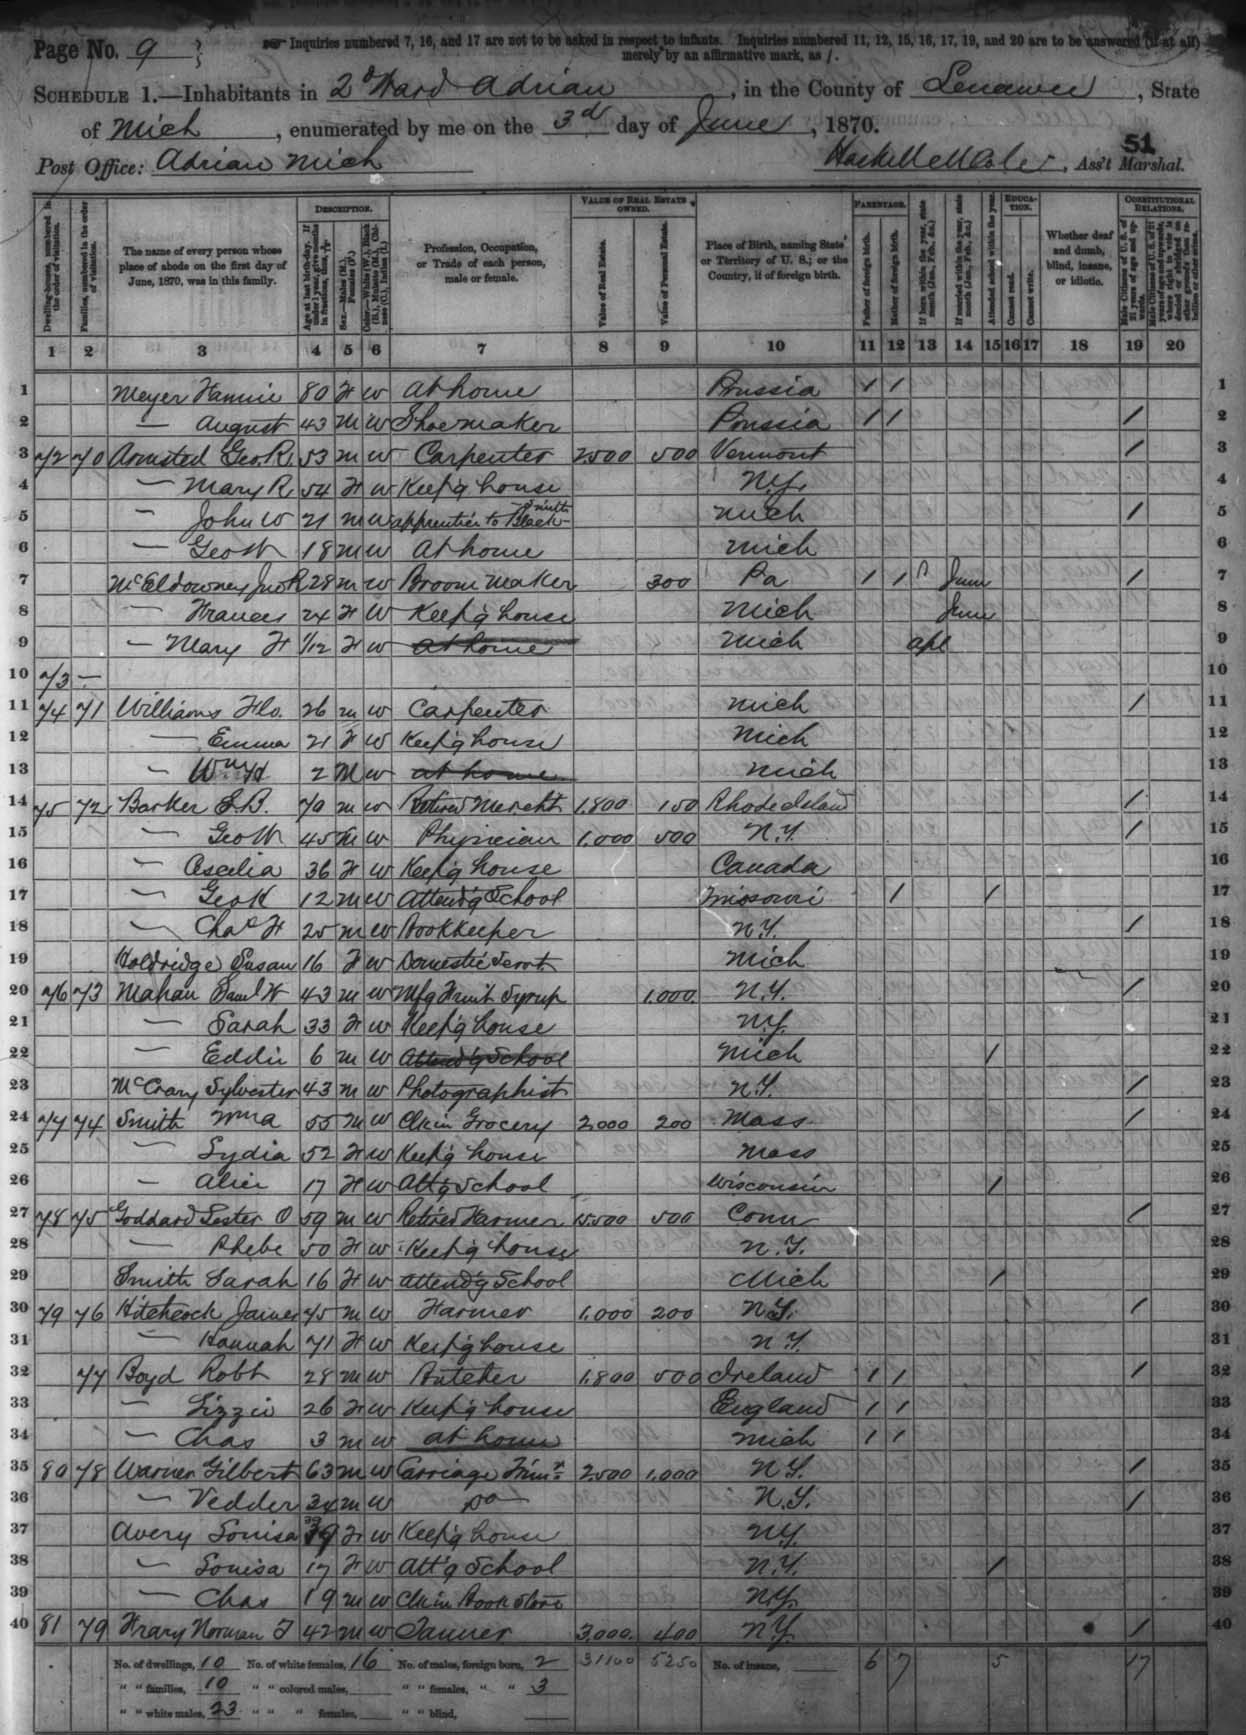 Page No. 9
Inquiries numbered 7, 16, and 17 are not to be asked in respect to infants. Inquiries numbered 11, 12, 15, 16, 17, 19, and 20 are to be answered (if at all) merely by an affirmative mark, as /.
SCHEDULE 1.—Inhabitants in 2d Ward Adrian, in the County of Lenawee, State
of Mich, enumerated by me on the 3rd day of June, 1870.
51
Post Office: Adrian Mich , Ass't Marshal.
DESCRIPTION. VALUE OF REAL ESTATE OWNED. PARENTAGE. EDUCATION. CONSTITUTIONAL RELATIONS.
Dwelling-houses, numbered in the order of visitation. Families, numbered in the order of visitation. The name of every person whose place of abode on the first day of June, 1870, was in this family. Age at last birth-day. If under 1 year, give months in fractions, thus, Sex.—Males (M.), Females (F.) Color.—White (W.), Black (B.), Mulatto (M.), Chinese (C.), Indian (I.) Profession, Occupation, or Trade of each person, male or female. Value of Real Estate. Value of Personal Estate. Place of Birth, naming State or Territory of U. S.; or the Country, if of foreign birth. Father of foreign birth. Mother of foreign birth. If born within the year, state month (Jan., Feb., &c.) If married within the year, state month (Jan., Feb., &c.) Attended school within the year. Cannot read. Cannot write. Whether deaf and dumb, blind, insane, or idiotic.
1 2 3 4 5 6 7 8 9 10 11 12 13 14 15 16 17 18 19 20
1 Meyer Fannie 80 F W At home Prussia / / 1
2 — August 43 M W Shoemaker Prussia / / / 2
3 72 70 Armsted Geo. R. 53 M W Carpenter 2500 500 Vermont / 3
4 — Mary R 54 F W Keep'g house N.Y. 4
5 — John W 21 M W apprentice to Blacksmith Mich / 5
6 — Geo W 18 M W At home Mich 6
7 McEldowney Jno R 28 M W Broom Maker 300 Pa / / June / 7
8 — Frances 24 F W Keep'g house Mich June 8
9 — Mary F 1/12 F W at home Mich Apl 9
10 73 — 10
11 74 71 Williams Flo. 26 M W Carpenter Mich / 11
12 — Emma 21 F W Keep'g house Mich 12
13 — Wm H 2 M W at home Mich 13
14 75 72 Barker S.B. 70 M W Retired Mercht 1,800 150 Rhode Island / 14
15 — Geo W 45 M W Physician 1,000 500 N.Y. / 15
16 — Cecelia 36 F W Keep'g house Canada 16
17 — Geo K 12 M W Attend'g School Missouri / / 17
18 — Chas H 25 M W Bookkeeper N.Y. / 18
19 Holdridge Susan 16 F W Domestic Servt Mich 19
20 76 73 Mahan Saml W 43 M W Mfg Fruit Syrup 1,000 N.Y. / 20
21 — Sarah 33 F W Keep'g house N.Y. 21
22 — Eddie 6 M W Attend'g School Mich / 22
23 McCrary Sylvester 43 M W Photographist N.Y. / 23
24 77 74 Smith Wm A 55 M W Clk in Grocery 2,000 200 Mass / 24
25 — Lydia 52 F W Keep'g house Mass 25
26 — Alice 17 F W Att'g School Wisconsin / 26
27 78 75 Goddard Lester O 59 M W Retired Farmer 15,500 500 Conn / 27
28 — Phebe 50 F W Keep'g house N.Y. 28
29 Smith Sarah 16 F W Attend'g School Mich / 29
30 79 76 Hitchcock James 75 M W Farmer 1,000 200 N.Y. / 30
31 — Hannah 71 F W Keep'g house N.Y. 31
32 77 Boyd Robt 28 M W Butcher 1,800 500 Ireland / / / 32
33 — Lizzie 26 F W Keep'g house England / / 33
34 — Chas 3 M W at home Mich / / 34
35 80 78 Warner Gilbert 63 M W Carriage Trimr 2,500 1,000 N.Y. / 35
36 — Vedder 34 M W Do N.Y. / 36
37 Avery Louisa 39 F W Keep'g house N.Y. 37
38 — Louisa 17 F W Att'g School N.Y. / 38
39 — Chas 19 M W Clk in Book Store N.Y. 39
40 81 79 Frary Norman T 42 M W Tanner 3,000 400 N.Y. / 40
No. of dwellings, 10 No. of white females, 16 No. of males, foreign born, 2 31100 5250 No. of insane, 6 7 5 17
" " families, 10 " " colored males, " " females, " " 3
" " white males, 23 " " " females, " " blind,